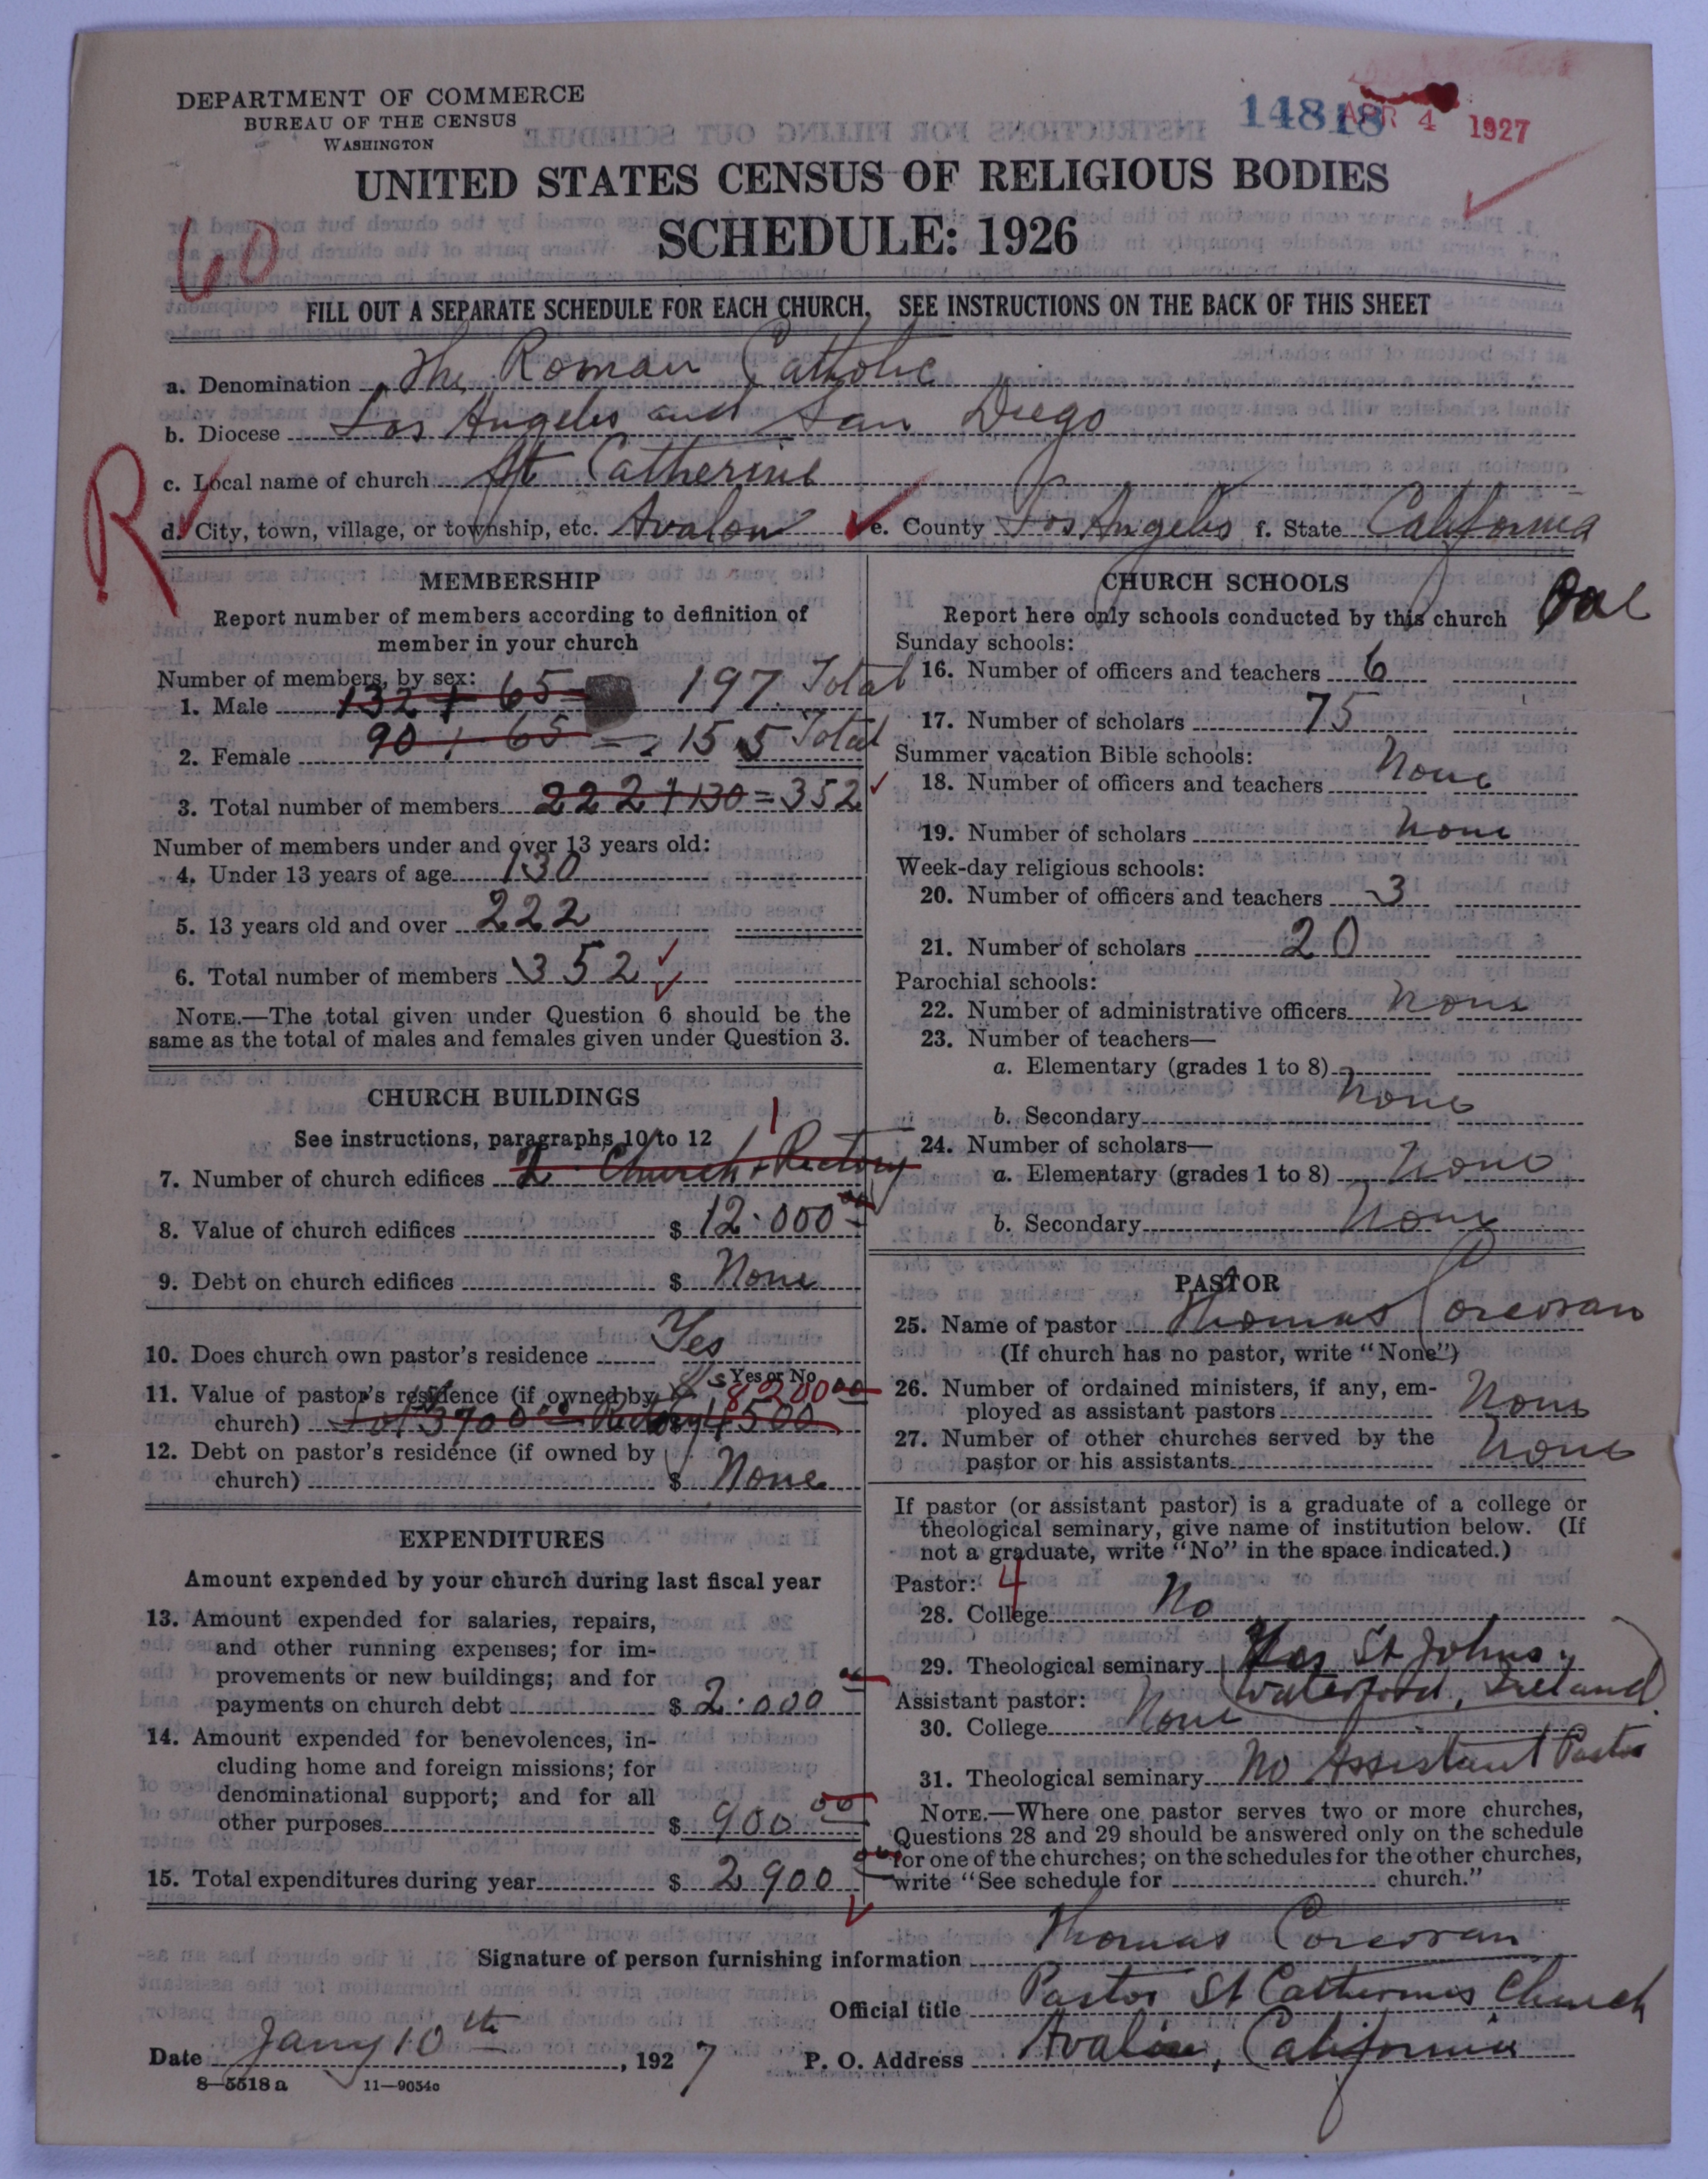 DEPARTMENT OF COMMERCE
BUREAU OF THE CENSUS
WASHINGTON
14818
APR 4 1927
UNITED STATES CENSUS OF RELIGIOUS BODIES
SCHEDULE: 1926
60
FILL OUT A SEPARATE SCHEDULE FOR EACH CHURCH. SEE INSTRUCTIONS ON THE BACK OF THIS SHEET
a. Denomination The Roman Catholic
b. Diocese Los Angeles and San Diego
R
c. Local name of church St Catherine
d. City, town, village, or township, etc. Avalon e. County Los Angeles f. State California
MEMBERSHIP
Report number of members according to definition of
member in your church
Number of members, by sex:
1. Male 132 + 65 = 197 Total
2. Female 90 + 65 = 155 Total
3. Total number of members 222 + 130 = 352
Number of members under and over 13 years old:
4. Under 13 years of age 130
5. 13 years old and over 222
6. Total number of members 352
NOTE.—The total given under Question 6 should be the
same as the total of males and females given under Question 3.
CHURCH BUILDINGS
See instructions, paragraphs 10 to 12
1
7. Number of church edifices 2 Church + Rectory
8. Value of church edifices $ 12.000 00
9. Debt on church edifices $ None
10. Does church own pastor's residence Yes
Yes or No
11. Value of pastor's residence (if owned by
church) Lot $3700 00 Rectory 4500 $ 8200 00
12. Debt on pastor's residence (if owned by
church) $ None
EXPENDITURES
Amount expended by your church during last fiscal year
13. Amount expended for salaries, repairs,
and other running expenses; for im-
provements or new buildings; and for
payments on church debt $ 2.000 00
14. Amount expended for benevolences, in-
cluding home and foreign missions; for
denominational support; and for all
other purposes $ 900 00
15. Total expenditures during year $ 2900 00
CHURCH SCHOOLS
Report here only schools conducted by this church One
Sunday schools:
16. Number of officers and teachers 6
17. Number of scholars 75
Summer vacation Bible schools:
18. Number of officers and teachers None
19. Number of scholars None
Week-day religious schools:
20. Number of officers and teachers 3
21. Number of scholars 20
Parochial schools:
22. Number of administrative officers None
23. Number of teachers—
a. Elementary (grades 1 to 8)
None
b. Secondary
24. Number of scholars—
a. Elementary (grades 1 to 8) None
b. Secondary None
PASTOR
25. Name of pastor Thomas Corcoran
(If church has no pastor, write "None")
26. Number of ordained ministers, if any, em-
ployed as assistant pastors None
27. Number of other churches served by the
pastor or his assistants None
If pastor (or assistant pastor) is a graduate of a college or
theological seminary, give name of institution below. (If
not a graduate, write "No" in the space indicated.)
Pastor: 4
28. College No
29. Theological seminary Yes St Johns,
Waterford, Ireland
Assistant pastor:
30. College None
31. Theological seminary No Assistant Pastor
NOTE.—Where one pastor serves two or more churches,
Questions 28 and 29 should be answered only on the schedule
for one of the churches; on the schedules for the other churches,
write "See schedule for church."
Signature of person furnishing information Thomas Corcoran
Official title Pastor St Catherines Church
Date Jany 10th, 1927 P. O. Address Avalon, California
8—5518 a 11—9054c